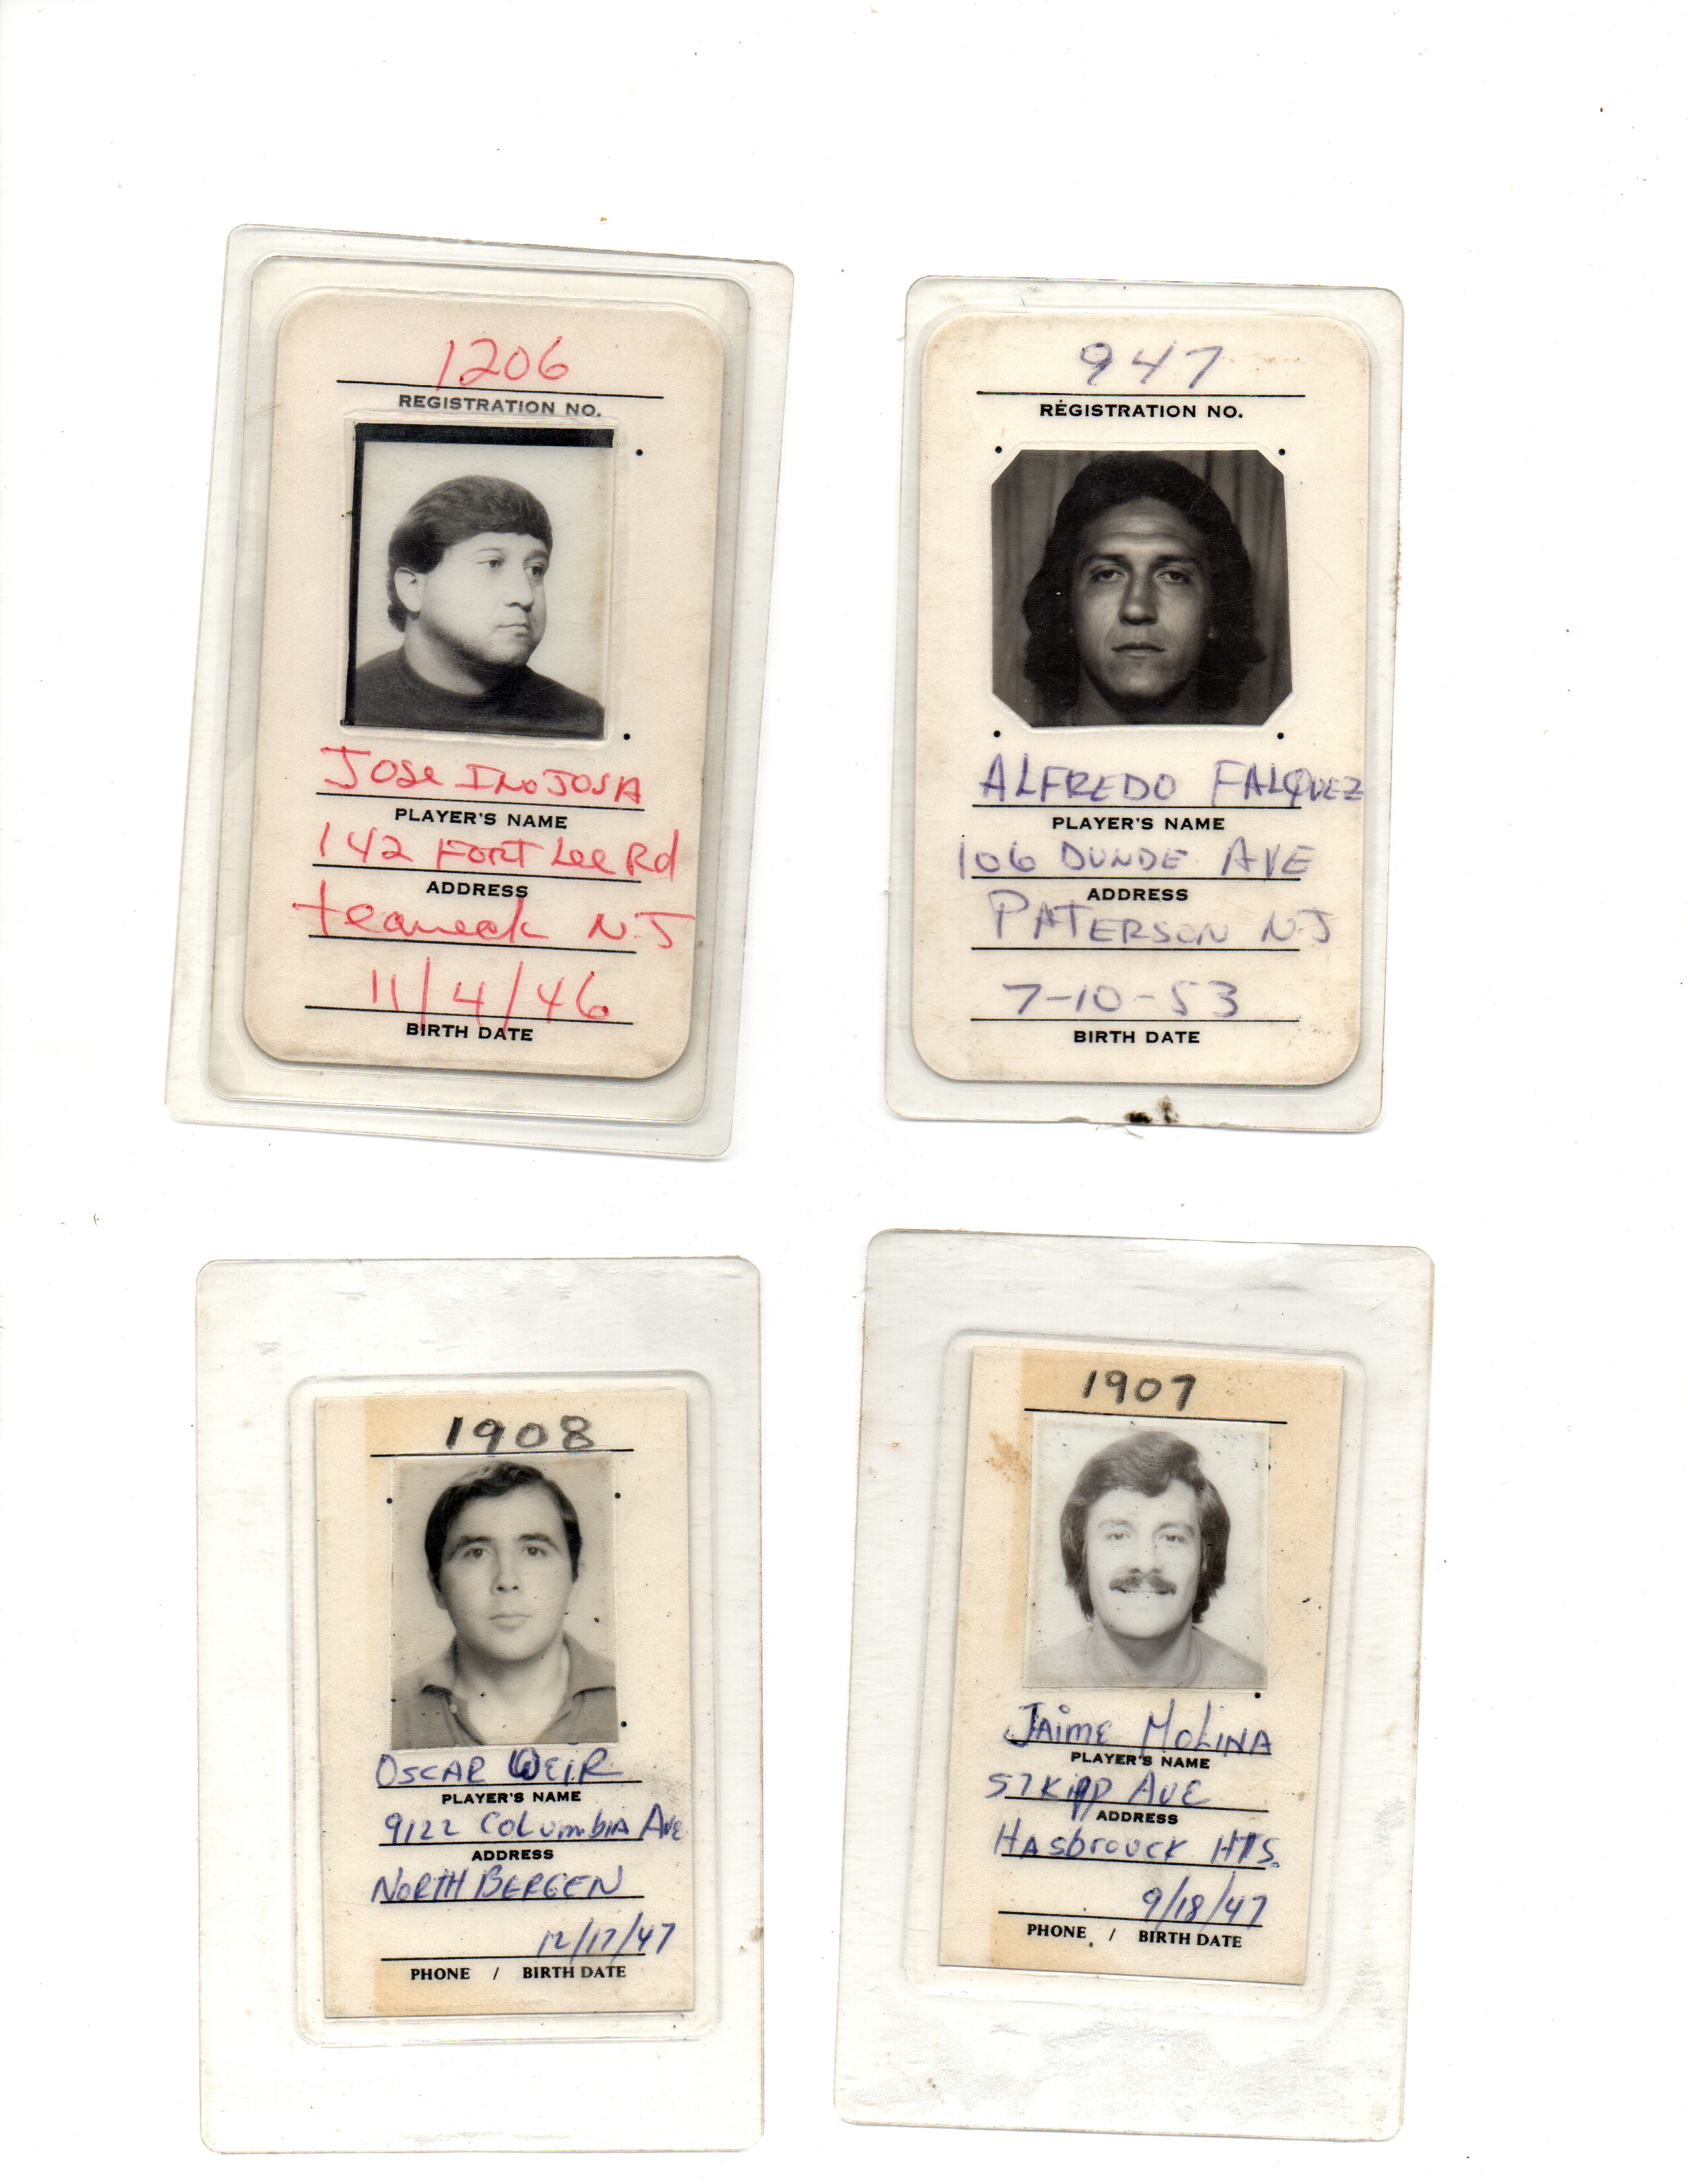 1206
REGISTRATION NO.
Jose InoJosA
PLAYER'S NAME
142 Fort Lee Rd
ADDRESS
teaneck N.J
11/4/46
BIRTH DATE
947
REGISTRATION NO.
ALFREDO FALQUEZ
PLAYER'S NAME
106 DUNDE AVE
ADDRESS
PATERSON NJ
7-10-53
BIRTH DATE
1908
OSCAR WEIR
PLAYER'S NAME
9122 Columbia Ave
ADDRESS
NORTH BERGEN
12/17/47
PHONE / BIRTH DATE
1907
JAime MOLINA
PLAYER'S NAME
57 Kipp AVE
ADDRESS
HAsbrouck HTS.
9/18/47
PHONE / BIRTH DATE